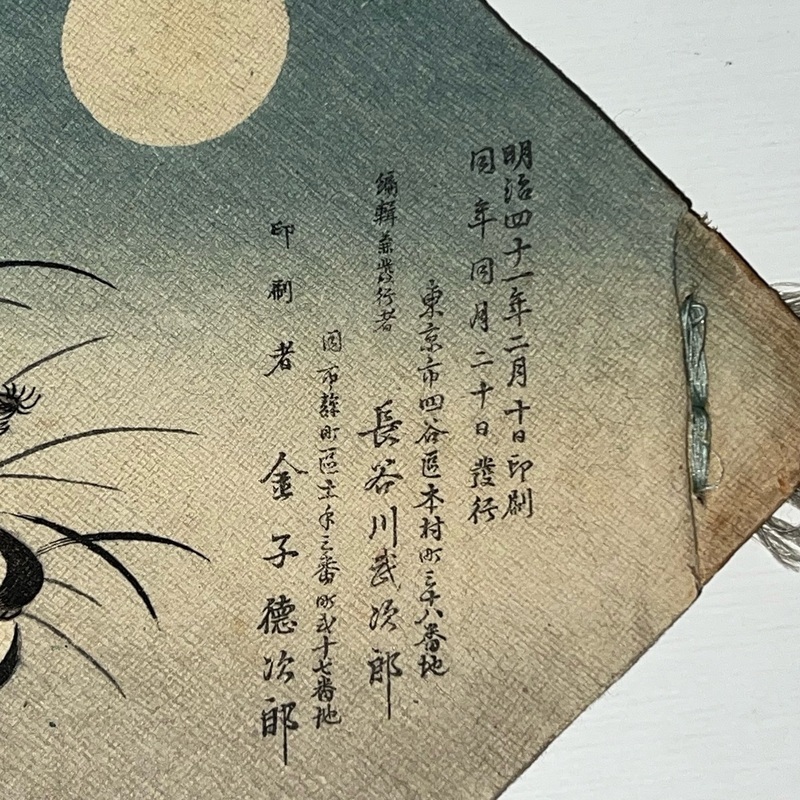 明治四十一年二月十日印刷
同年同月二十日發行
東京市四谷區本村町三十八番地
編輯兼發行者 長谷川武次郎
同市麹町區土手三番町弐十七番地
印刷者 金子徳次郎